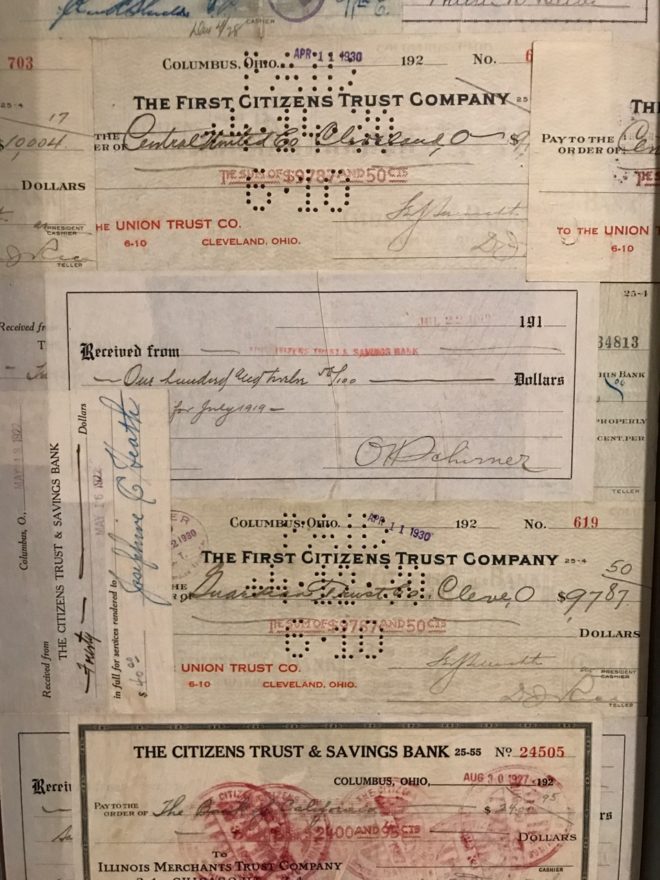 Dec 4/28
CASHIER
703
COLUMBUS, OHIO. APR 11 1930 192 No. 6
25-4
17
THE FIRST CITIZENS TRUST COMPANY 25
TH
10,004
THE
ER OF Central United Co Cleveland, O $9,
PAY TO THE
ORDER OF Cen
PAID
THE SUM OF $9787 AND 50 CTS
DOLLARS
6-10
PRESIDENT
CASHIER
HE UNION TRUST CO.
TO THE UNION T
6-10 CLEVELAND, OHIO.
6-10
TELLER
25-4
191
34813
Received fr
Received from CITIZENS TRUST & SAVINGS BANK
HIS BANK
One hundred and twelve 50/100 Dollars
for July 1919
PROPERLY
CENT, PER
O H Schirner
TELLER
Columbus, O., MAY 13 1922
Received from
THE CITIZENS TRUST & SAVINGS BANK
Forty Dollars
MAY 16 1922
in full for services rendered to
$40.00
Josephine C. Heath
COLUMBUS, OHIO. APR 11 1930 192 No. 619
THE FIRST CITIZENS TRUST COMPANY 25-4
50
HE
Guardian Trust Co. Cleve, O $9,787.
PAID
THE SUM OF $9787 AND 50 CTS
DOLLARS
6-10
UNION TRUST CO.
PRESIDENT
CASHIER
6-10 CLEVELAND, OHIO.
TELLER
THE CITIZENS TRUST & SAVINGS BANK 25-55 No 24505
COLUMBUS, OHIO, AUG 30 1927 192
Receiv
PAY TO THE
ORDER OF The Bank of California $2400 95
rs
$2400 AND 95 CTS
DOLLARS
TO
ILLINOIS MERCHANTS TRUST COMPANY
CASHIER